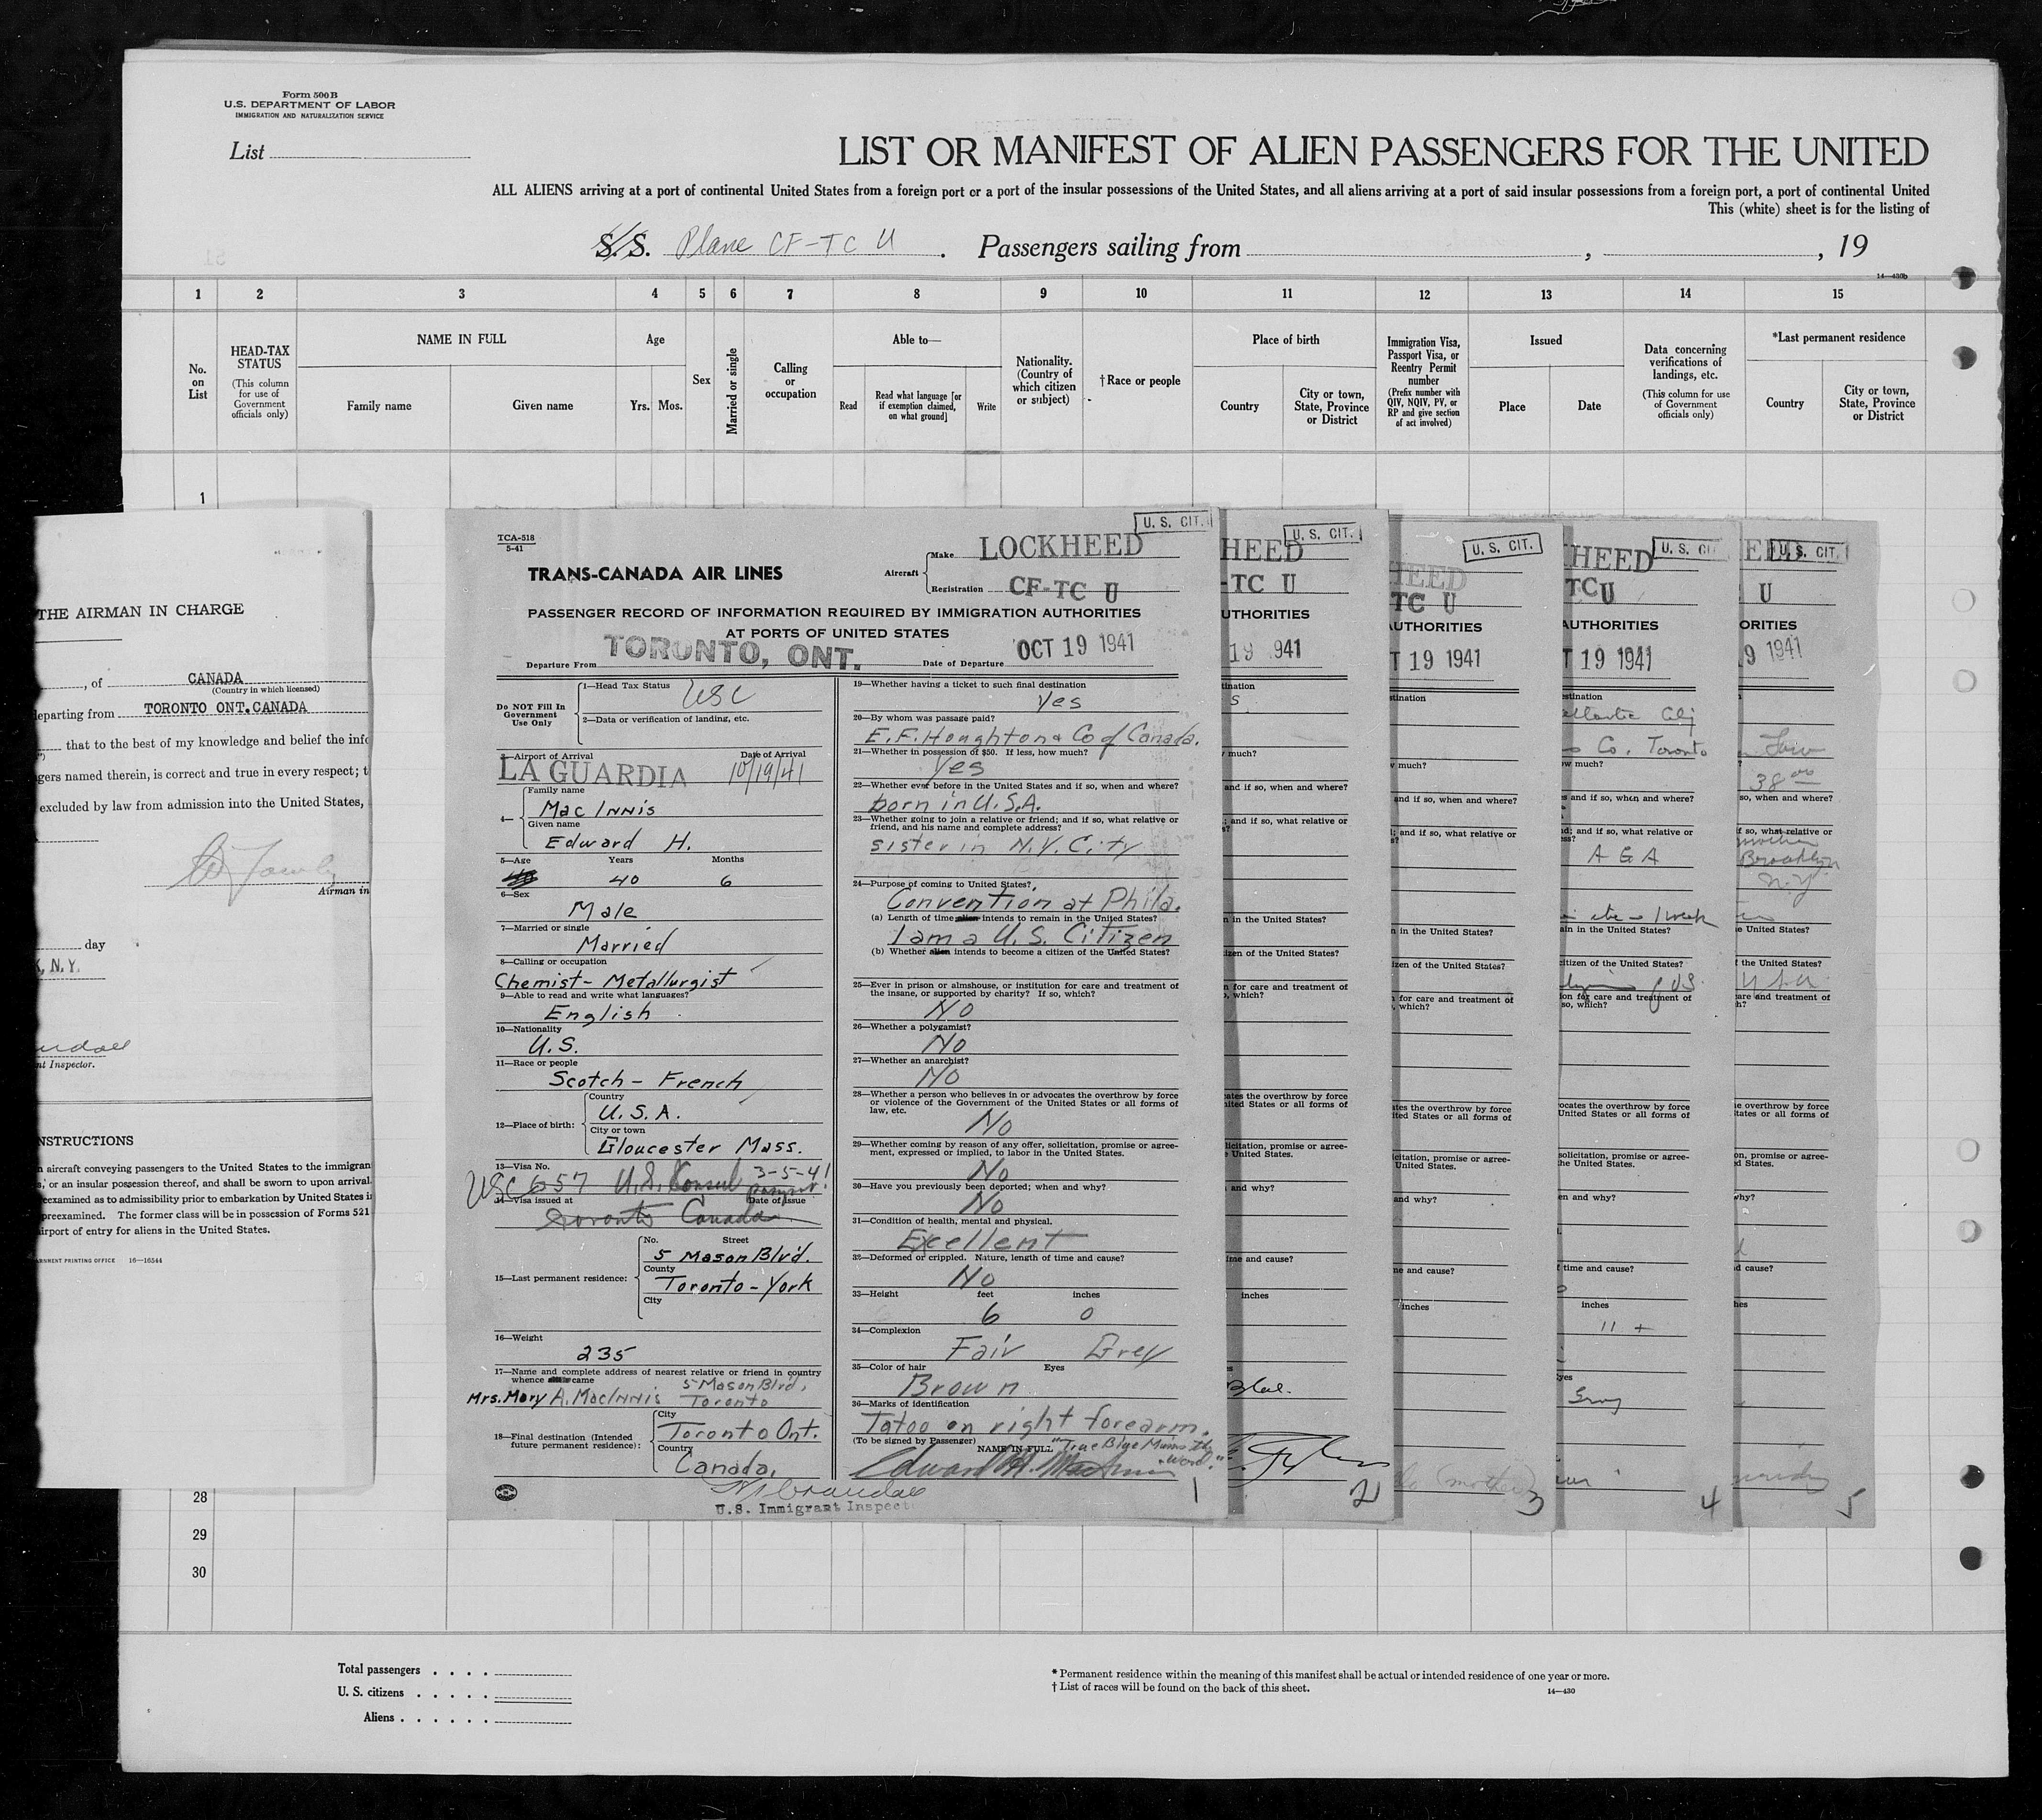 Form 500B
U.S. DEPARTMENT OF LABOR
IMMIGRATION AND NATURALIZATION SERVICE
List
LIST OR MANIFEST OF ALIEN PASSENGERS FOR THE UNITED
ALL ALIENS arriving at a port of continental United States from a foreign port or a port of the insular possessions of the United States, and all aliens arriving at a port of said insular possessions from a foreign port, a port of continental United
This (white) sheet is for the listing of
S.S. Plane CF-TC U . Passengers sailing from , , 19
14—430b
1 2 3 4 5 6 7 8 9 10 11 12 13 14 15
No. on List
HEAD-TAX STATUS
(This column for use of Government officials only)
NAME IN FULL
Family name
Given name
Age
Yrs. Mos.
Sex
Married or single
Calling or occupation
Able to—
Read
Read what language [or if exemption claimed, on what ground]
Write
Nationality. (Country of which citizen or subject)
†Race or people
Place of birth
Country
City or town, State, Province or District
Immigration Visa, Passport Visa, or Reentry Permit number
(Prefix number with QIV, NQIV, PV, or RP and give section of act involved)
Issued
Place
Date
Data concerning verifications of landings, etc.
(This column for use of Government officials only)
*Last permanent residence
Country
City or town, State, Province or District
1
THE AIRMAN IN CHARGE
, of CANADA
(Country in which licensed)
departing from TORONTO ONT.CANADA
that to the best of my knowledge and belief the info
gers named therein, is correct and true in every respect; t
excluded by law from admission into the United States,
Airman in
day
, N.Y.
nt Inspector.
NSTRUCTIONS
n aircraft conveying passengers to the United States to the immigran
s, or an insular possession thereof, and shall be sworn to upon arrival.
eexamined as to admissibility prior to embarkation by United States i
preexamined. The former class will be in possession of Forms 521
irport of entry for aliens in the United States.
ERNMENT PRINTING OFFICE 16—16544
TCA-518
5-41
TRANS-CANADA AIR LINES
Aircraft
Make LOCKHEED
Registration CF-TC U
U. S. CIT.
PASSENGER RECORD OF INFORMATION REQUIRED BY IMMIGRATION AUTHORITIES
AT PORTS OF UNITED STATES
Departure From TORONTO, ONT. Date of Departure OCT 19 1941
Do NOT Fill In Government Use Only
1—Head Tax Status USC
2—Data or verification of landing, etc.
3—Airport of Arrival Date of Arrival
LA GUARDIA 10/19/41
4—
Family name
Mac Innis
Given name
Edward H.
5—Age Years Months
40 6
6—Sex
Male
7—Married or single
Married
8—Calling or occupation
Chemist - Metallurgist
9—Able to read and write what languages?
English
10—Nationality
U.S.
11—Race or people
Scotch - French
12—Place of birth:
Country
U.S.A.
City or town
Gloucester Mass.
13—Visa No.
USC 657 U.S. Consul 3-5-41
14—Visa issued at Date of Issue
Toronto Canada
15—Last permanent residence:
No. Street
5 Mason Blvd.
County
Toronto - York
City
16—Weight
235
17—Name and complete address of nearest relative or friend in country
whence came
5 Mason Blvd,
Mrs. Mary A. MacInnis Toronto
18—Final destination (Intended future permanent residence):
City
Toronto Ont.
Country
Canada.
19—Whether having a ticket to such final destination
Yes
20—By whom was passage paid?
E.F. Houghton & Co of Canada.
21—Whether in possession of $50. If less, how much?
Yes
22—Whether ever before in the United States and if so, when and where?
born in U.S.A.
23—Whether going to join a relative or friend; and if so, what relative or
friend, and his name and complete address?
sister in N.Y. City
24—Purpose of coming to United States?
Convention at Phila.
(a) Length of time alien intends to remain in the United States?
I am a U.S. Citizen
(b) Whether alien intends to become a citizen of the United States?
25—Ever in prison or almshouse, or institution for care and treatment of
the insane, or supported by charity? If so, which?
No
26—Whether a polygamist?
No
27—Whether an anarchist?
No
28—Whether a person who believes in or advocates the overthrow by force
or violence of the Government of the United States or all forms of
law, etc.
No
29—Whether coming by reason of any offer, solicitation, promise or agree-
ment, expressed or implied, to labor in the United States.
No
30—Have you previously been deported; when and why?
No
31—Condition of health, mental and physical.
Excellent
32—Deformed or crippled. Nature, length of time and cause?
No
33—Height feet inches
6 0
34—Complexion
Fair Grey
35—Color of hair Eyes
Brown
36—Marks of identification
Tatoo on right forearm.
(To be signed by Passenger) NAME IN FULL
"True Blue Mums the Word."
Edward H. MacInnis
U.S. Immigrant Inspect
1
U. S. CIT.
HEED
-TC U
UTHORITIES
19 1941
2
U. S. CIT.
HEED
TC U
AUTHORITIES
T 19 1941
(mother)
3
U. S. CIT.
HEED
TCU
AUTHORITIES
T 19 1941
Co. Toronto
A G A
1 week
inches
11 +
4
U. S. CIT.
EED
U
ORITIES
9 1941
38 00
mother
Brooklyn
N.Y
5
28
29
30
Total passengers . . . .
U. S. citizens . . . . .
Aliens . . . . . .
* Permanent residence within the meaning of this manifest shall be actual or intended residence of one year or more.
† List of races will be found on the back of this sheet.
14—430